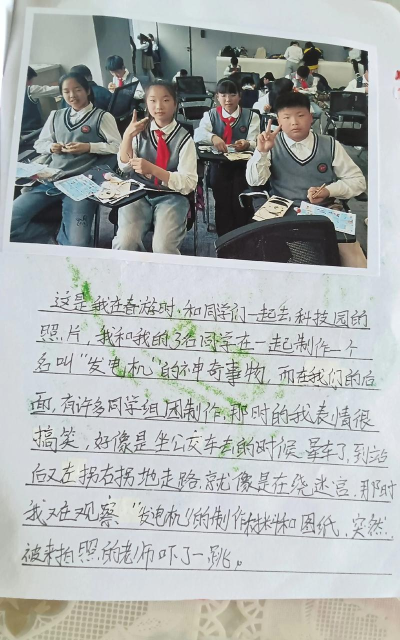 这是我在春游时,和同学们一起去科技园的
照片,我和我的3名同学在一起制作一个
名叫“发电机”的神奇事物,而在我们的后
面,有许多同学组团制作,那时的我表情很
搞笑,好像是坐公交车去的时候晕车了,到站
后又左拐右拐地走路,就像是在绕迷宫,那时
我在观察“发电机”的制作材料和图纸,突然
被来拍照的老师吓了一跳。